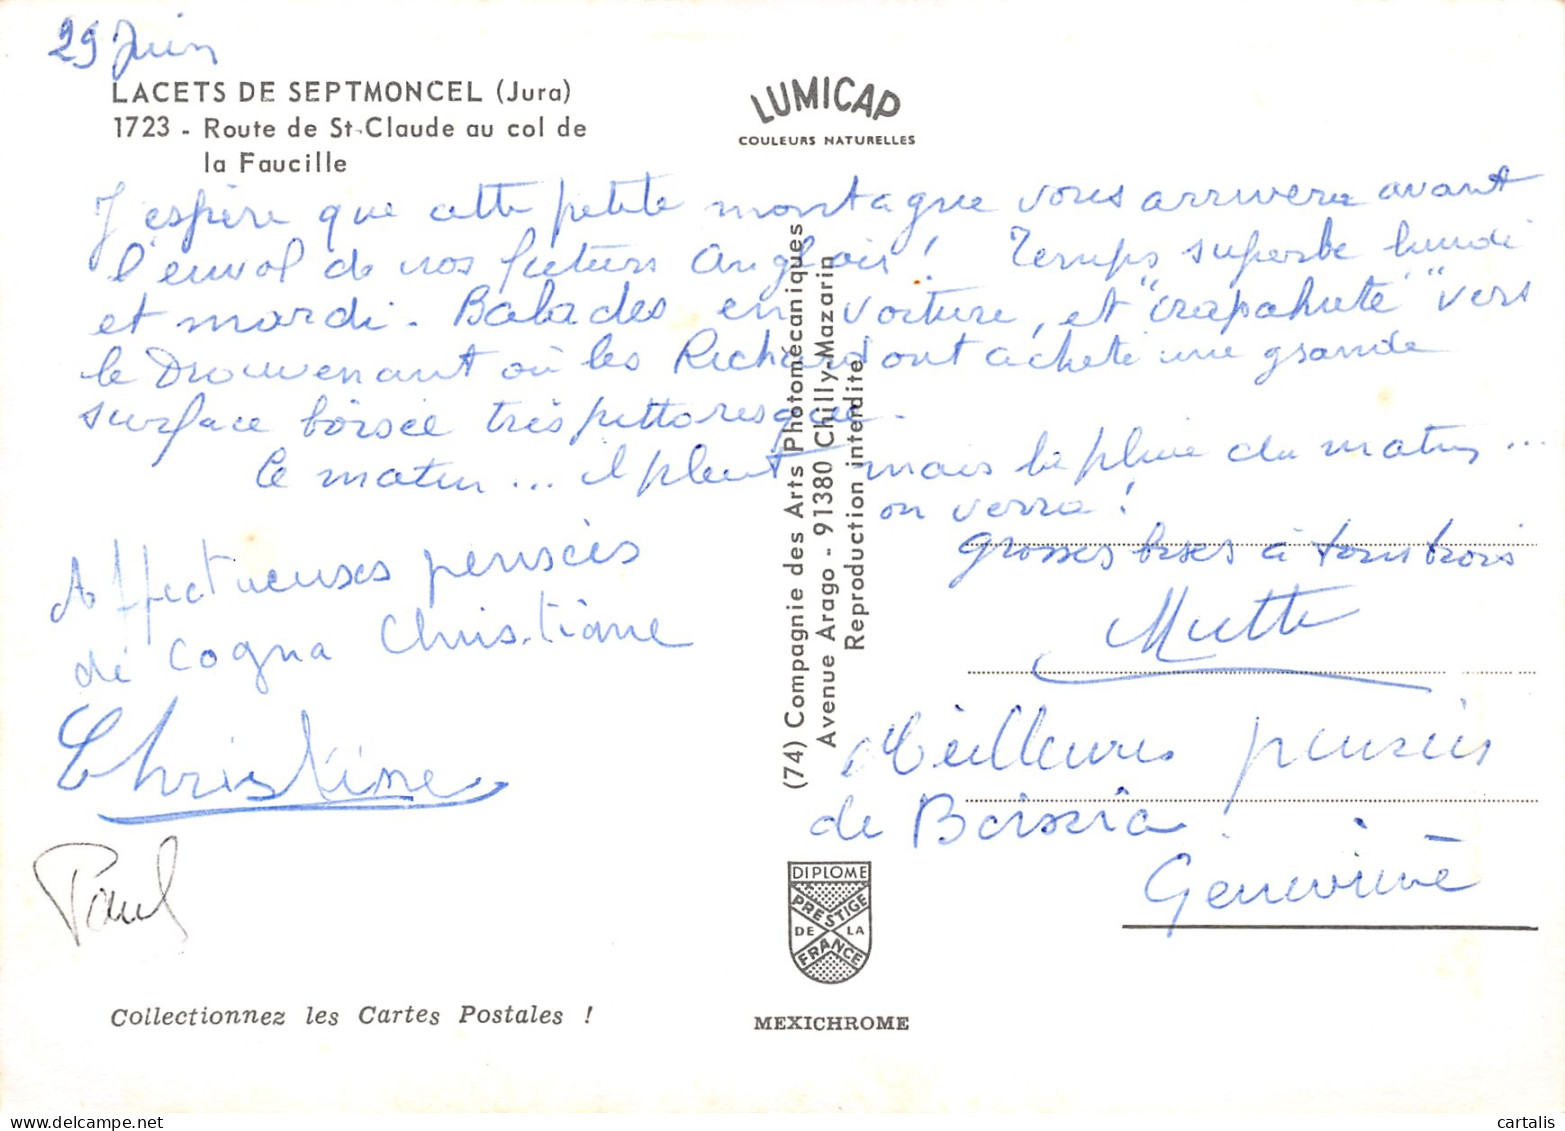 29 Juin
LACETS DE SEPTMONCEL (Jura)
1723 - Route de St-Claude au col de
la Faucille
LUMICAP
COULEURS NATURELLES
J'espère que cette petite montagne vous arrivera avant
l'envol de nos futurs Anglais ! Temps superbe lundi
et mardi. Balades en voiture, et "crapahute" vers
le Drouvenant où les Richard ont acheté une grande
surface boisée très pittoresque.
Ce matin... il pleut mais la pluie du matin...
on verra !
Grosses bises à tous trois
Mutte
Affectueuses pensées
de Cogna Christiane
Christine
Paul
Meilleures pensées
de Boissia.
Geneviève
(74) Compagnie des Arts Photomécaniques
Avenue Arago - 91380 Chilly-Mazarin
Reproduction interdite
DIPLOME
PRESTIGE
DE LA
FRANCE
Collectionnez les Cartes Postales !
MEXICHROME
delcampe.net
cartalis